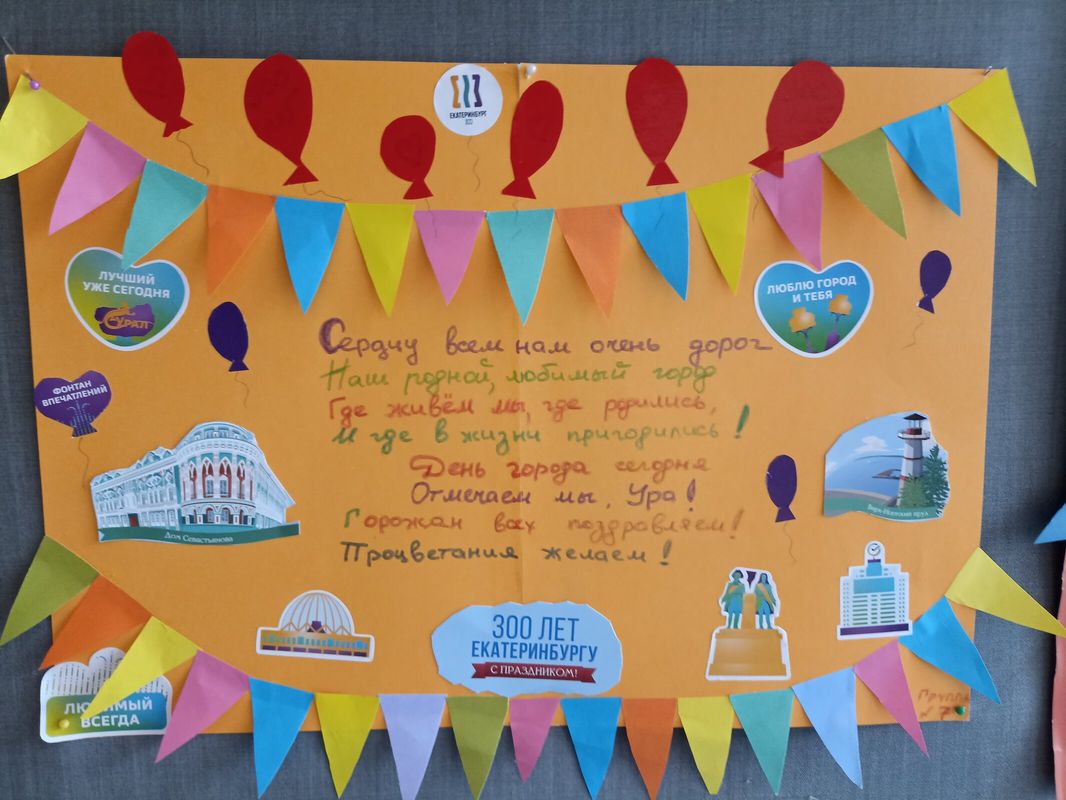 ЕКАТЕРИНБУРГ
300
ЛУЧШИЙ
УЖЕ СЕГОДНЯ
УРАЛ
ЛЮБЛЮ ГОРОД
И ТЕБЯ
ФОНТАН
ВПЕЧАТЛЕНИЙ
Сердцу всем нам очень дорог
Наш родной, любимый город
Где живём мы, где родились,
И где в жизни пригодились!
День города сегодня
Отмечаем мы, Ура!
Горожан всех поздравляем!
Процветания желаем!
Дом Севастьянова
Верх-Исетский пруд
300 ЛЕТ
ЕКАТЕРИНБУРГУ
С ПРАЗДНИКОМ!
ЛЮБИМЫЙ
ВСЕГДА
Группа
№7